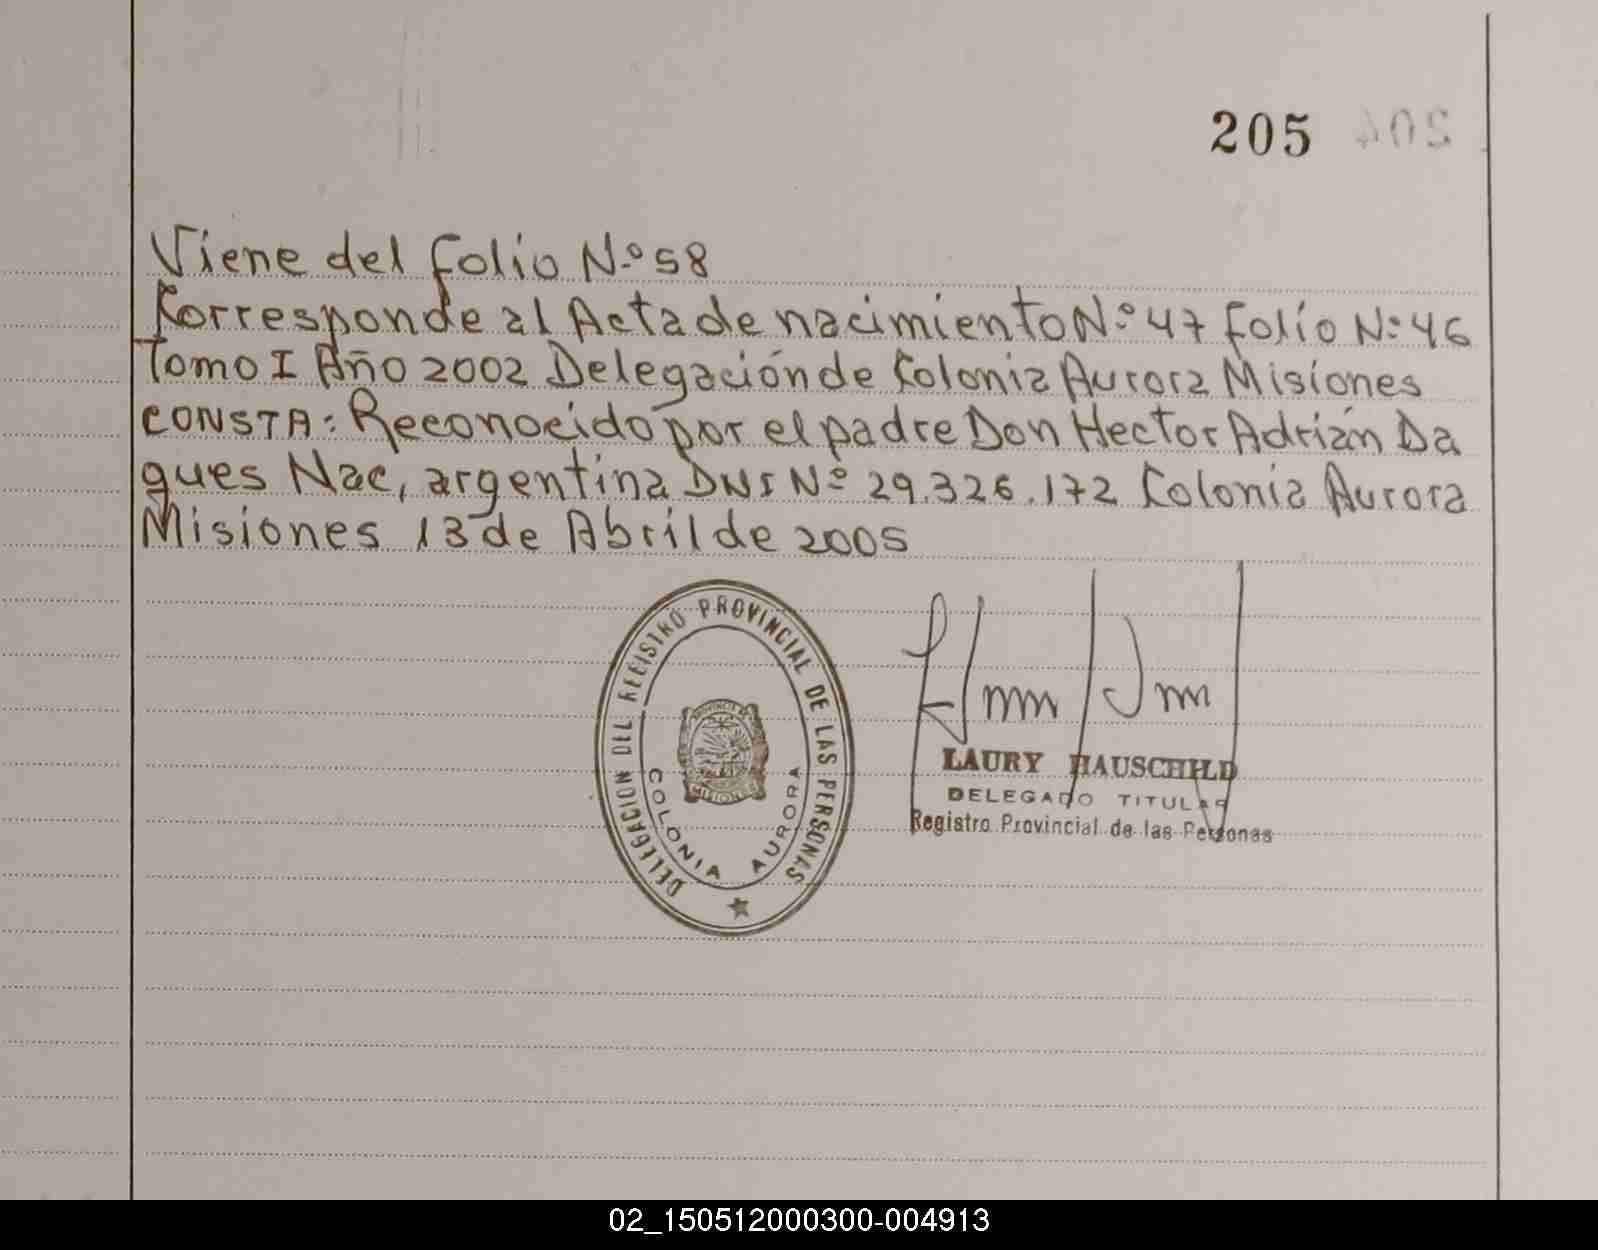 205
Viene del Folio N.º 58
Korresponde al Acta de nacimiento N.º 47 Folio N.º 46
Tomo I Año 2002 Delegación de Kolonia Aurora Misiones
CONSTA: Reconocido por el padre Don Hector Adrián Da
ques Nac, argentina DNI Nº 29.326.172 Kolonia Aurora
Misiones 13 de Abril de 2005
DELEGACION DEL REGISTRO PROVINCIAL DE LAS PERSONAS
PROVINCIA DE
MISIONES
COLONIA AURORA
LAURY HAUSCHILD
DELEGADO TITULAR
Registro Provincial de las Personas
02_150512000300-004913